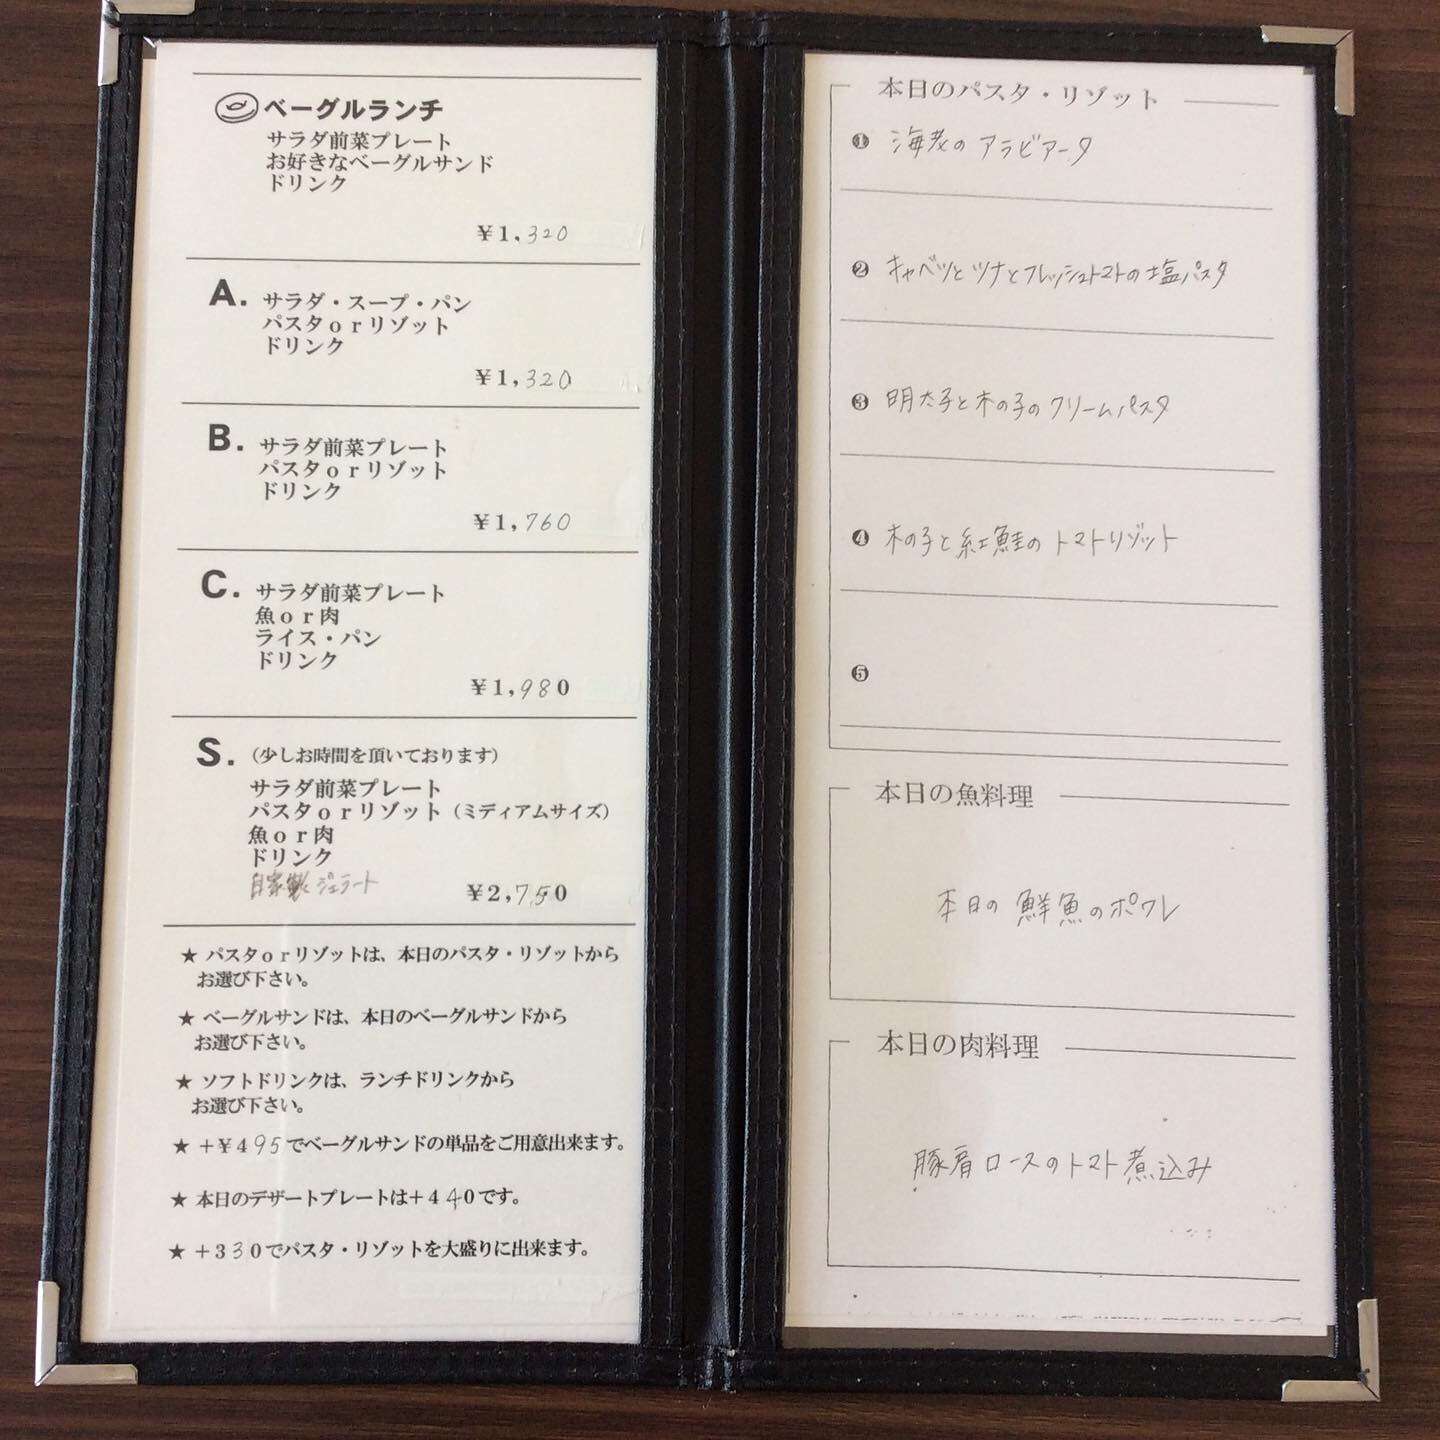 ベーグルランチ
サラダ前菜プレート
お好きなベーグルサンド
ドリンク
¥1,320
A. サラダ・スープ・パン
パスタorリゾット
ドリンク
¥1,320
B. サラダ前菜プレート
パスタorリゾット
ドリンク
¥1,760
C. サラダ前菜プレート
魚or肉
ライス・パン
ドリンク
¥1,980
S. (少しお時間を頂いております)
サラダ前菜プレート
パスタorリゾット(ミディアムサイズ)
魚or肉
ドリンク
自家製ジェラート
¥2,750
★ パスタorリゾットは、本日のパスタ・リゾットから
お選び下さい。
★ ベーグルサンドは、本日のベーグルサンドから
お選び下さい。
★ ソフトドリンクは、ランチドリンクから
お選び下さい。
★ +¥495でベーグルサンドの単品をご用意出来ます。
★ 本日のデザートプレートは+440です。
★ +330でパスタ・リゾットを大盛りに出来ます。
本日のパスタ・リゾット
❶ 海老のアラビアータ
❷ キャベツとツナとフレッシュトマトの塩パスタ
❸ 明太子と木の子のクリームパスタ
❹ 木の子と紅鮭のトマトリゾット
❺
本日の魚料理
本日の鮮魚のポワレ
本日の肉料理
豚肩ロースのトマト煮込み